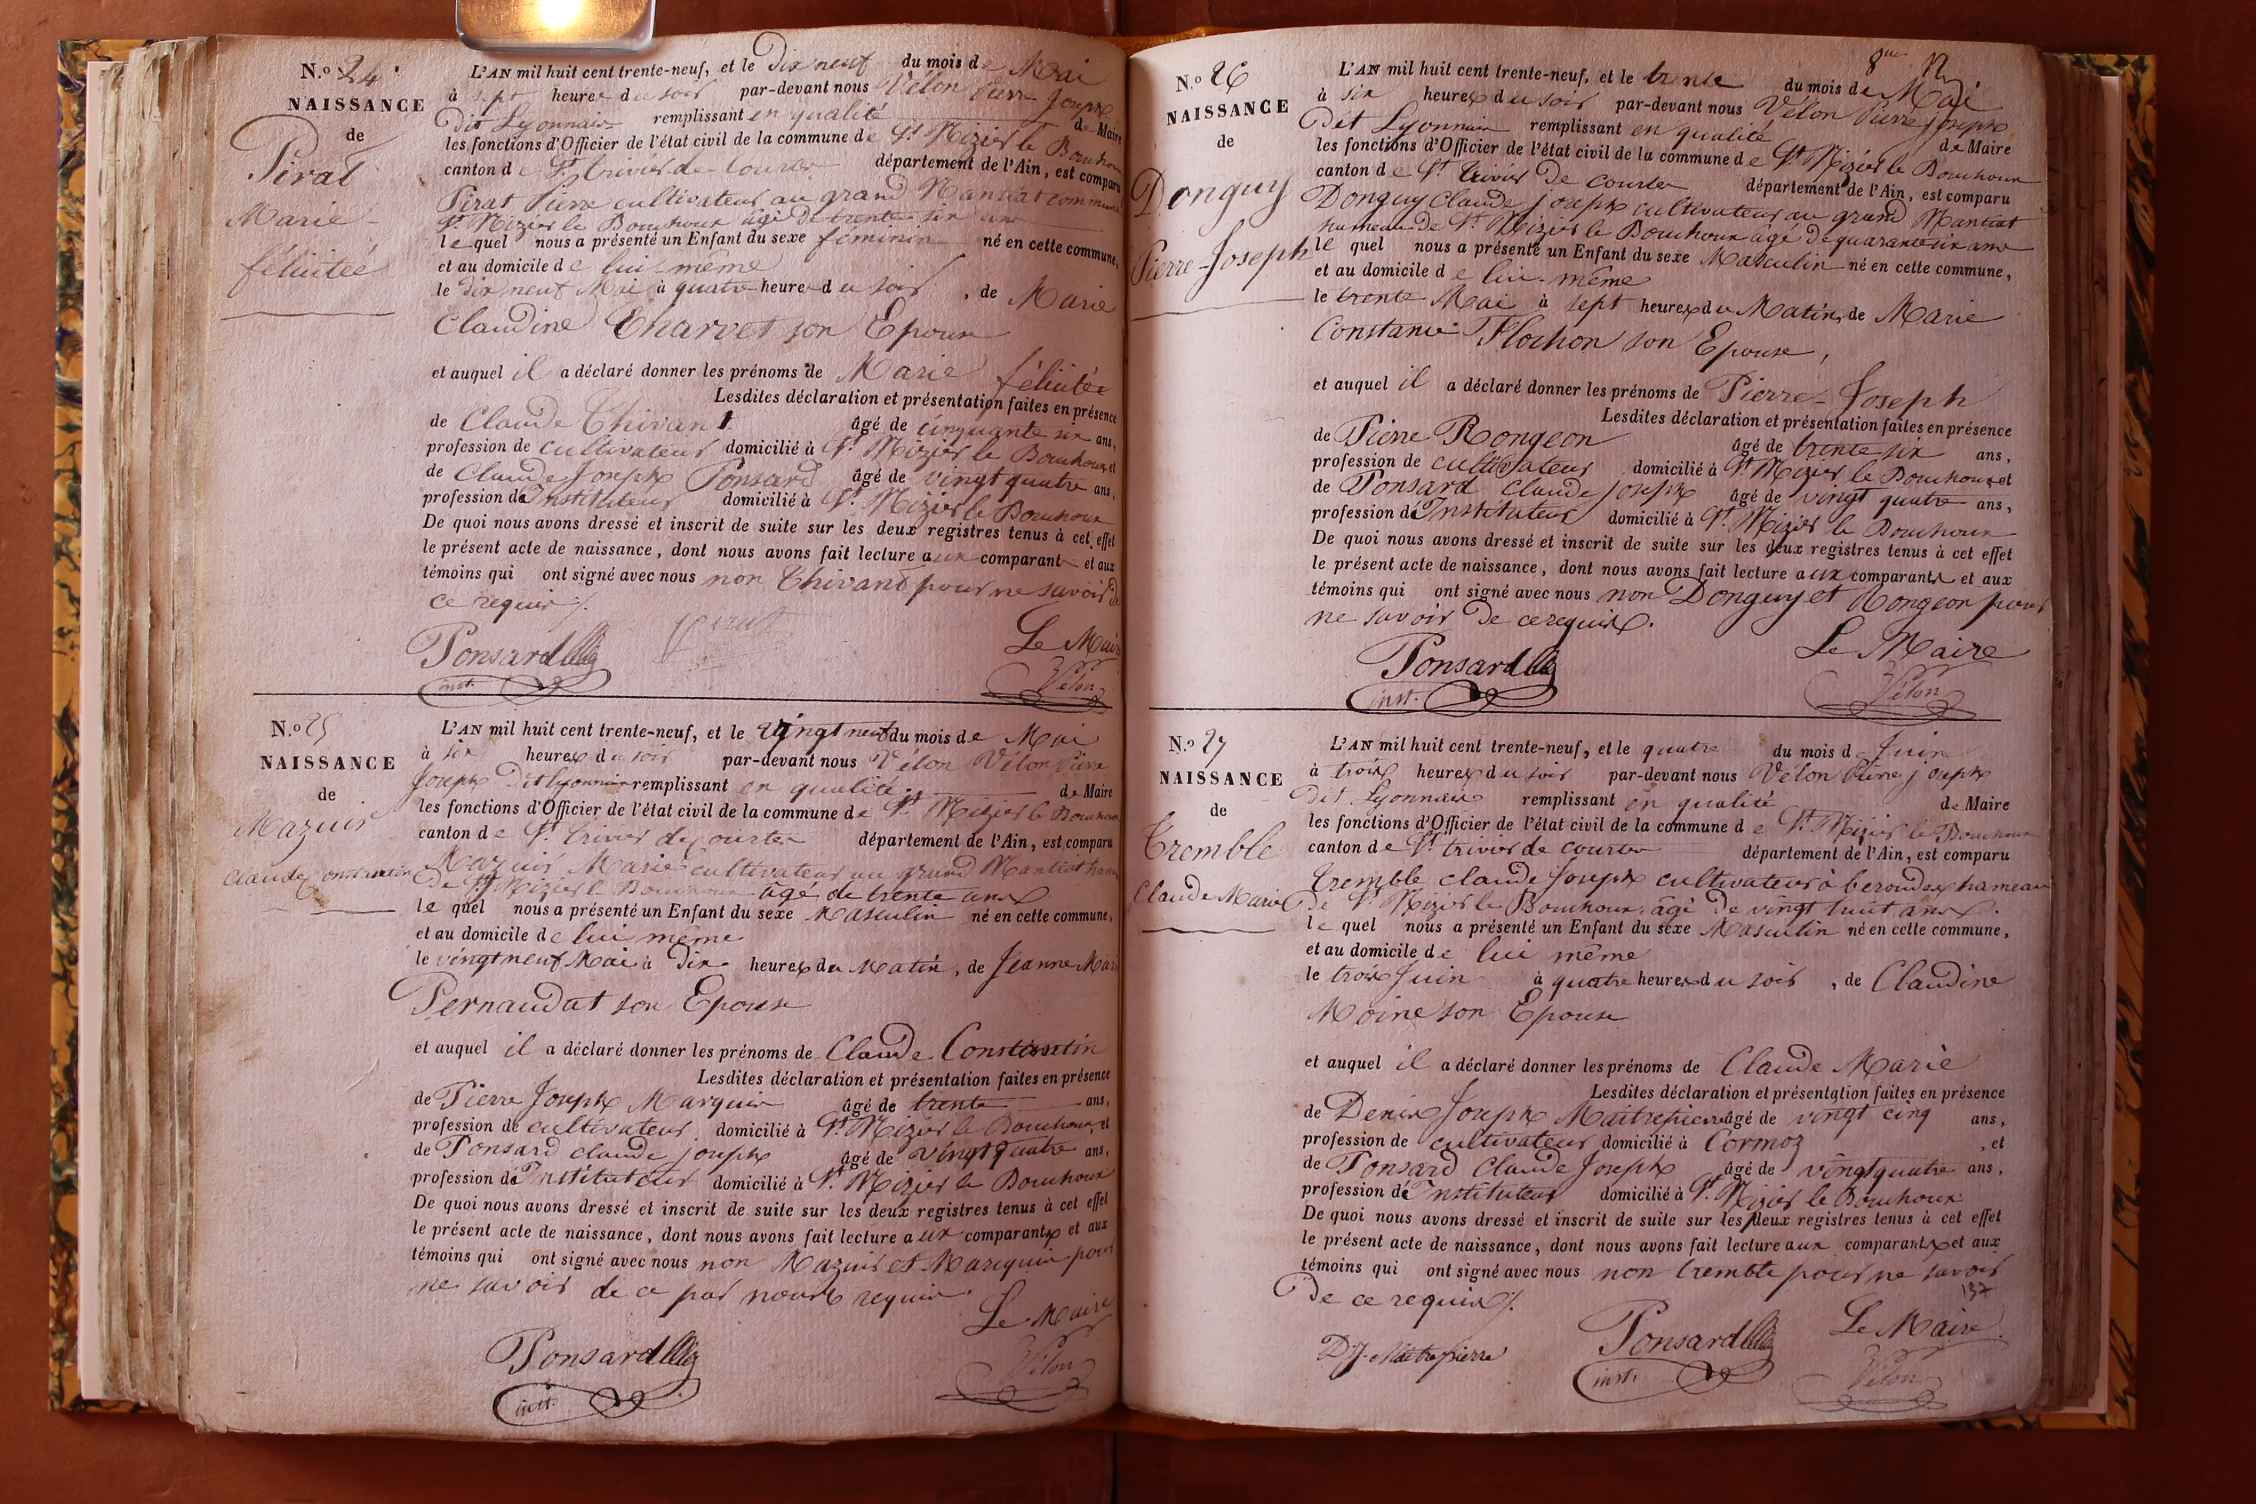 N.o 24
NAISSANCE
de
Pirat
Marie
félicitée
L'AN mil huit cent trente-neuf, et le Dix neuf du mois de Mai
à sept heures du soir par-devant nous Vélon Pierre Joseph
Dit Lyonnais remplissant en qualité de Maire
les fonctions d'Officier de l'état civil de la commune de St. Nizier le Bouchoux
canton de St. trivier de Courtes département de l'Ain, est comparu
Pirat Pierre cultivateur au grand Mantiat commune
St. Nizier le Bouchoux âgé de trente six ans
lequel nous a présenté un Enfant du sexe féminin né en cette commune,
et au domicile de lui même
le dix neuf Mai à quatre heures du soir, de Marie
Claudine Charvet son Epouse
et auquel il a déclaré donner les prénoms de Marie félicitée
Lesdites déclaration et présentation faites en présence
de Claude Chivant âgé de cinquante six ans,
profession de cultivateur domicilié à St. Nizier le Bouchoux et
de Claude Joseph Ponsard âgé de vingt quatre ans,
profession de Instituteur domicilié à St. Nizier le Bouchoux
De quoi nous avons dressé et inscrit de suite sur les deux registres tenus à cet effet
le présent acte de naissance, dont nous avons fait lecture aux comparant et aux
témoins qui ont signé avec nous non Chivant pour ne savoir de
ce requis ./.
Ponsard Pirat Le Maire
inst. Vélon
N.o 25
NAISSANCE
de
Mazuir
Claude Constantin
L'AN mil huit cent trente-neuf, et le vingt neuf du mois de Mai
à six heures du soir par-devant nous Vélon Vélon Pierre
Joseph Dit Lyonnais remplissant en qualité de Maire
les fonctions d'Officier de l'état civil de la commune de St. Nizier le Bouchoux
canton de St. trivier de Courtes département de l'Ain, est comparu
Mazuir Marie cultivateur au grand Mantiat hameau
De St. Nizier le Bouchoux âgé de trente ans
lequel nous a présenté un Enfant du sexe Masculin né en cette commune,
et au domicile de lui même
le vingt neuf Mai à Dix heures du Matin, de Jeanne Marie
Pernaudat son Epouse
et auquel il a déclaré donner les prénoms de Claude Constantin
Lesdites déclaration et présentation faites en présence
de Pierre Joseph Marquis âgé de trente ans,
profession de cultivateur domicilié à St. Nizier le Bouchoux, et
de Ponsard claude joseph âgé de vingt quatre ans,
profession de Instituteur domicilié à St. Nizier le Bouchoux
De quoi nous avons dressé et inscrit de suite sur les deux registres tenus à cet effet
le présent acte de naissance, dont nous avons fait lecture aux comparants et aux
témoins qui ont signé avec nous non Mazuir et Marquis pour
ne savoir de ce par nous requis.
Le Maire
Ponsard Vélon
inst.
N.o 26
NAISSANCE
de
Donguy
Pierre-Joseph
L'AN mil huit cent trente-neuf, et le trente du mois de Mai
à six heures du soir par-devant nous Vélon Pierre joseph
Dit Lyonnais remplissant en qualité de Maire
les fonctions d'Officier de l'état civil de la commune de St. Nizier le Bouchoux
canton de St. trivier De courtes département de l'Ain, est comparu
Donguy Claude joseph cultivateur au grand Mantiat
hameau de St. Nizier le Bouchoux âgé de quarante six ans
lequel nous a présenté un Enfant du sexe Masculin né en cette commune,
et au domicile de lui-même
le trente Mai à sept heures du Matin, de Marie
Constance Flochon son Epouse,
et auquel il a déclaré donner les prénoms de Pierre-Joseph
Lesdites déclaration et présentation faites en présence
de Pierre Rongeon âgé de trente six ans,
profession de cultivateur domicilié à St. Nizier le Bouchoux et
de Ponsard Claude joseph âgé de vingt quatre ans,
profession de Instituteur domicilié à St. Nizier le Bouchoux
De quoi nous avons dressé et inscrit de suite sur les deux registres tenus à cet effet
le présent acte de naissance, dont nous avons fait lecture aux comparants et aux
témoins qui ont signé avec nous non Donguy et Rongeon pour
ne savoir De ce requis.
Ponsard Le Maire
inst. Vélon
N.o 27
NAISSANCE
de
Tremble
Claude Marie
L'AN mil huit cent trente-neuf, et le quatre du mois d Juin
à trois heures du soir par-devant nous Vélon Pierre joseph
Dit Lyonnais remplissant en qualité de Maire
les fonctions d'Officier de l'état civil de la commune de St. Nizier le Bouchoux
canton de St. trivier de courtes département de l'Ain, est comparu
Tremble claude Joseph cultivateur à beroudes hameau
De St. Nizier le Bouchoux, âgé De vingt huit ans.
lequel nous a présenté un Enfant du sexe Masculin né en cette commune,
et au domicile de lui même
le trois Juin à quatre heures du soir, de Claudine
Moine son Epouse
et auquel il a déclaré donner les prénoms de Claude Marie
Lesdites déclaration et présentation faites en présence
de Denis Joseph Maitrepierre âgé de vingt cinq ans,
profession de cultivateur domicilié à Cormoz, et
de Ponsard Claude Joseph âgé de vingt quatre ans,
profession de Instituteur domicilié à St. Nizier le Bouchoux
De quoi nous avons dressé et inscrit de suite sur les deux registres tenus à cet effet
le présent acte de naissance, dont nous avons fait lecture aux comparants et aux
témoins qui ont signé avec nous non tremble pour ne savoir
De ce requis ./.
137
D. J. Maitrepierre Ponsard Le Maire
inst. Vélon